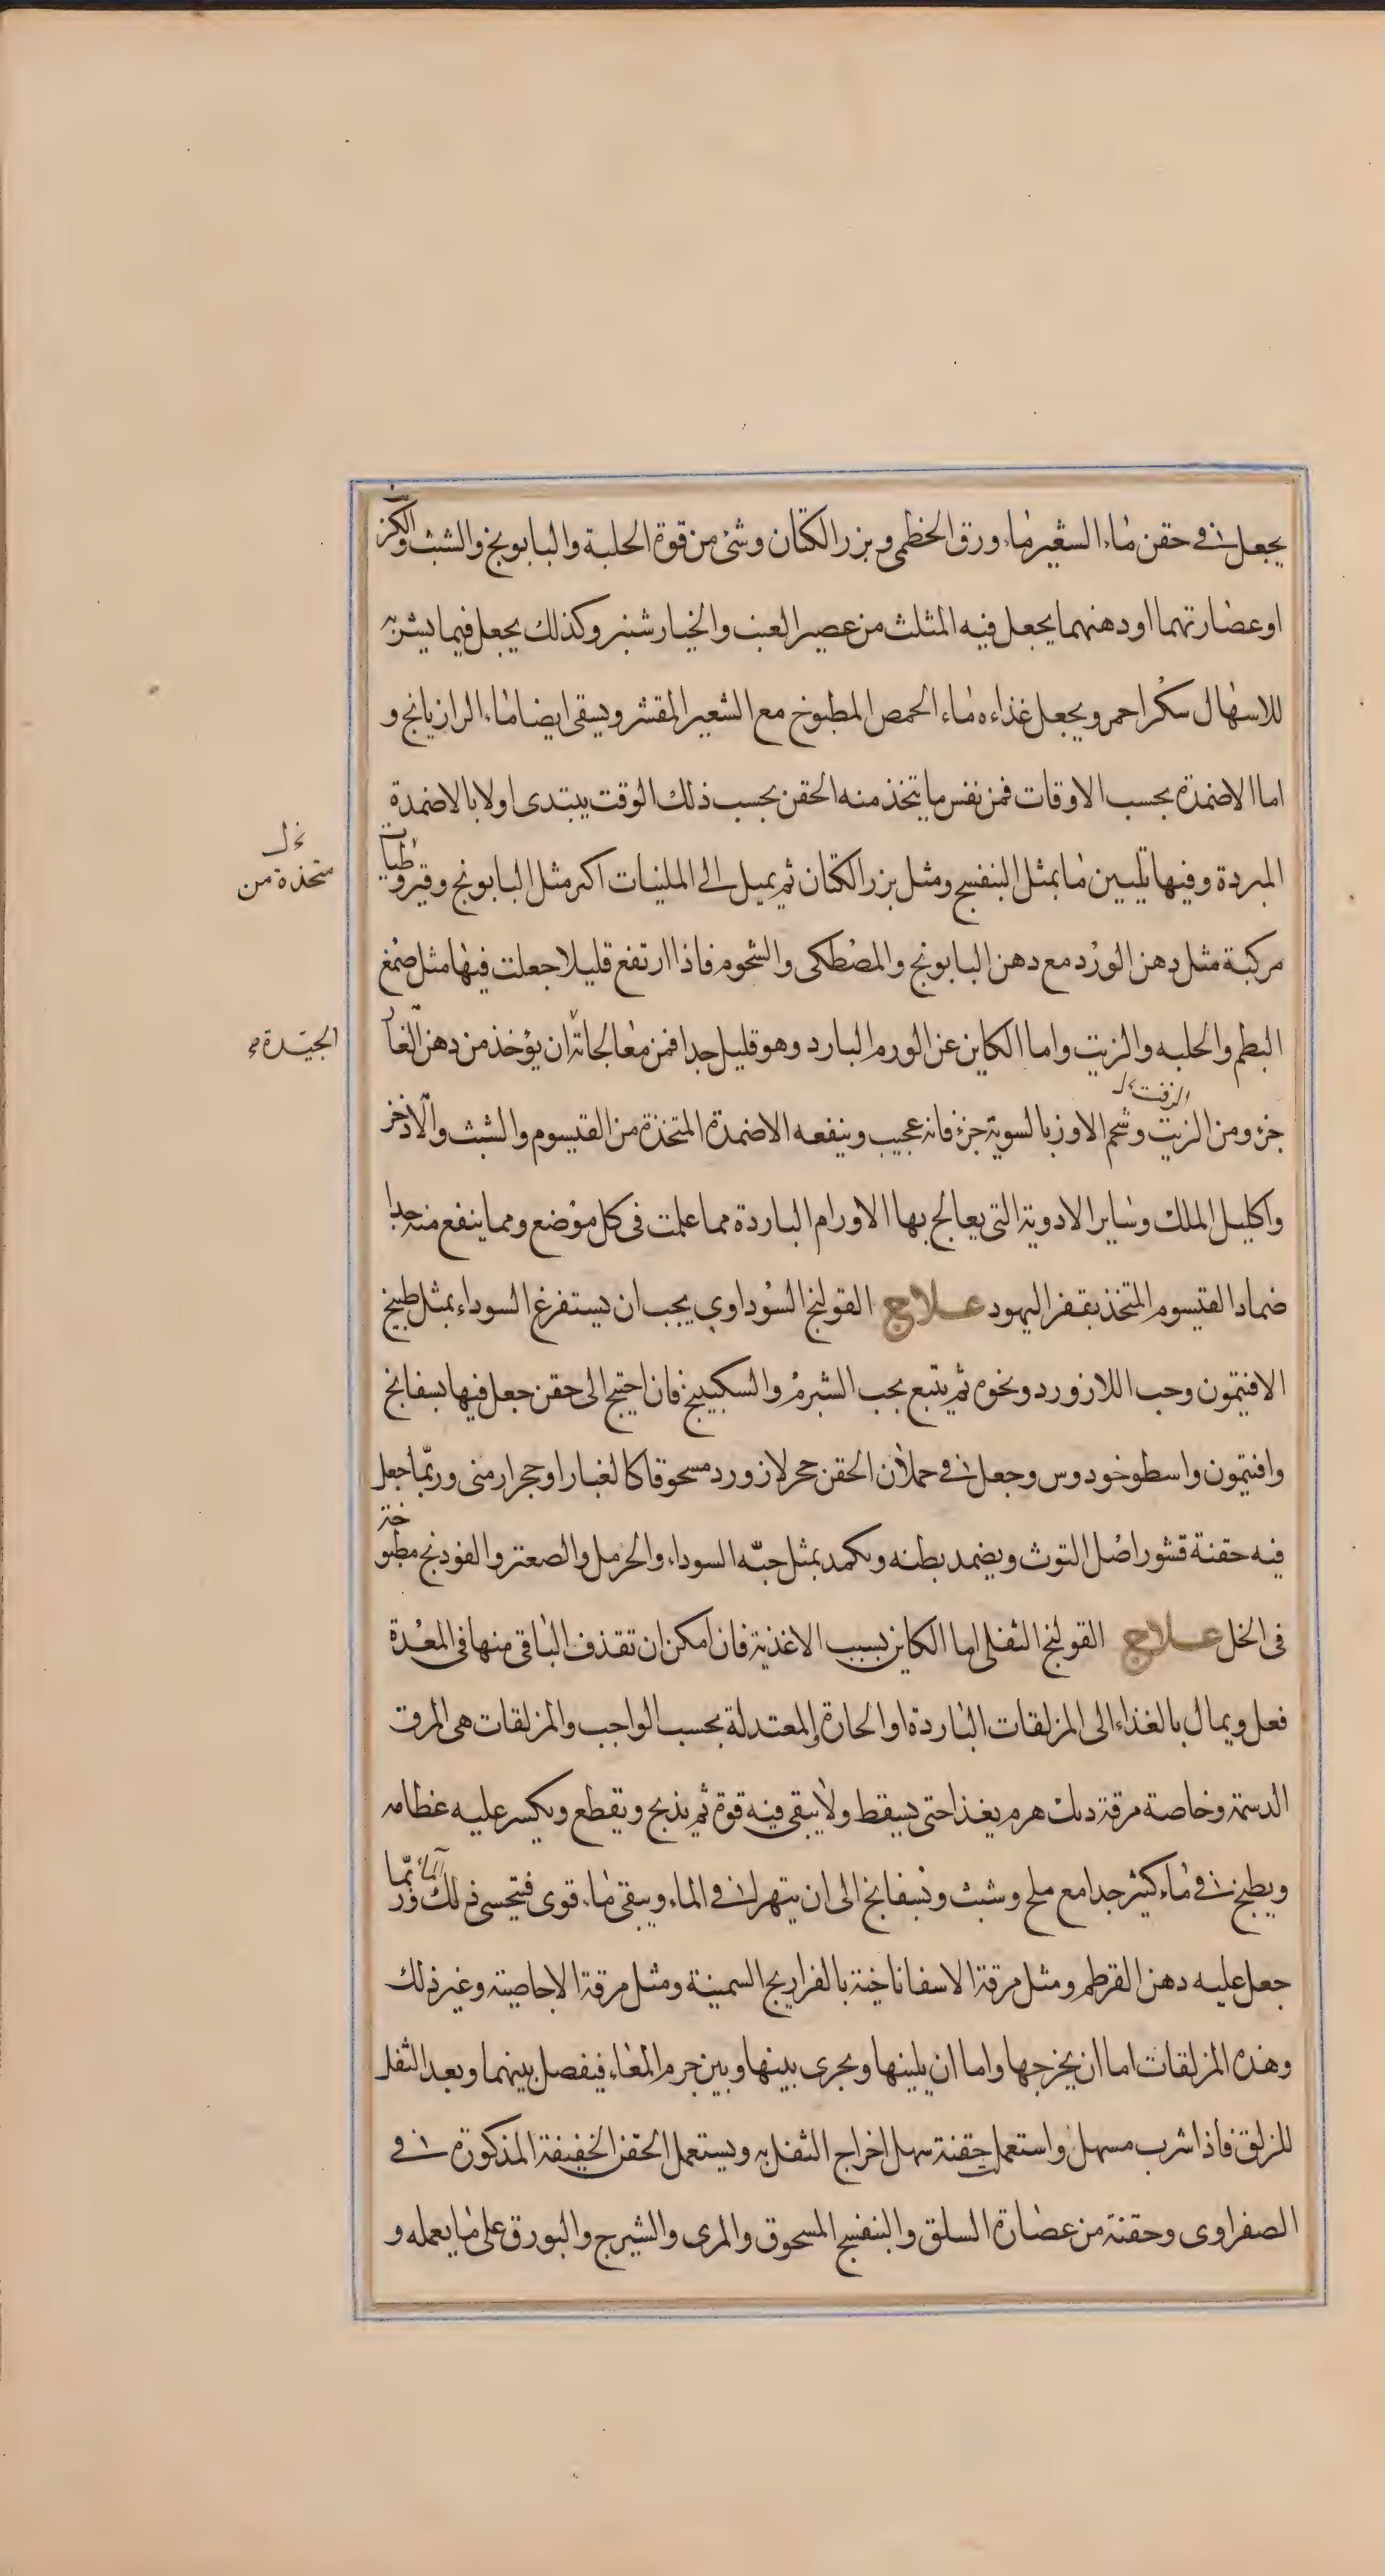 يجعل في حقن ماء الشعير ماء ورق الخطمى وبزر الكتان وشئ من قوة الحلبة والبابونج والشبث والكرنب
او عصارتهما او دهنهما يجعل فيه المثلث من عصير العنب والخيار شنبر وكذلك يجعل فيما يشربه
للاسهال سكرا احمر ويجعل غذاءه ماء الحمص المطبوخ مع الشعير المقشر ويسقى ايضا ماء الرازيانج و
اما الاضمدة بحسب الاوقات فمن نفس ما يتخذ منه الحقن بحسب ذلك الوقت يبتدى اولا بالاضمدة
المبردة وفيها تليين ما بمثل البنفسج ومثل بزر الكتان ثم يميل الى الملينات اكثر مثل البابونج وقيروطيات
متخذة من
مركبة مثل دهن الورد مع دهن البابونج والمصطكى والشحوم فاذا ارتفع قليلا جعلت فيها مثل صمغ
البطم والحلبه والزيت واما الكاين عن الورم البارد وهو قليل جدا فمن معالجاته ان يؤخذ من دهن الغار
الجيدة
الزفت
جزء ومن الزيت وشحم الاوز بالسوية جزء فانه عجيب وينفعه الاضمدة المتخذة من القيسوم والشبث والاذخر
واكليل الملك وساير الادوية التى يعالج بها الاورام الباردة مما علمت فى كل موضع ومما ينفع منه جدا
ضماد القيسوم المتخذ بقفر اليهود علاج القولنج السوداوي يجب ان يستفرغ السوداء بمثل طبيخ
الافتيمون وحب اللازورد ونحوه ثم يتبع بحب الشبرم والسكبينج فان احتيج الى حقن جعل فيها بسفايج
وافتيمون واسطوخودوس وجعل في حملان الحقن حجر لازورد مسحوقا كالغبار او حجر ارمنى وربما جعل
فيه حقنة قشور اصل التوث ويضمد بطنه ويكمد بمثل حبه السوداء والحرمل والصعتر والفودنج مطبوخة
فى الخل علاج القولنج الثفلى اما الكاين بسبب الاغذية فان امكن ان تقذف الباقى منها فى المعدة
فعل ويمال بالغذاء الى المزلقات الباردة او الحارة والمعتدلة بحسب الواجب والمزلقات هى المرق
الدسمة وخاصة مرقة ديك هرم يغذا حتى يسقط ولا يبقى فيه قوة ثم يذبح ويقطع ويكسر عليه عظامه
ويطبخ في ماء كثير جدا مع ملح وشبث وبسفايج الى ان يتهرا في الماء ويبقى ماء قوى فيتحسى ذلك الماء وربما
جعل عليه دهن القرطم ومثل مرقة الاسفاناخية بالفراريج السمينة ومثل مرقة الاجاصية وغير ذلك
وهذه المزلقات اما ان يخرجها واما ان يلينها ويجرى بينها وبين جرم المعاء فيفصل بينهما ويعد الثفل
للزلق فاذا شرب مسهل واستعملت حقنة سهل اخراج الثفل به ويستعمل الحقن الخفيفة المذكورة في
الصفراوى وحقنة من عصارة السلق والبنفسج المسحوق والمرى والشيرج والبورق على ما يعمله و